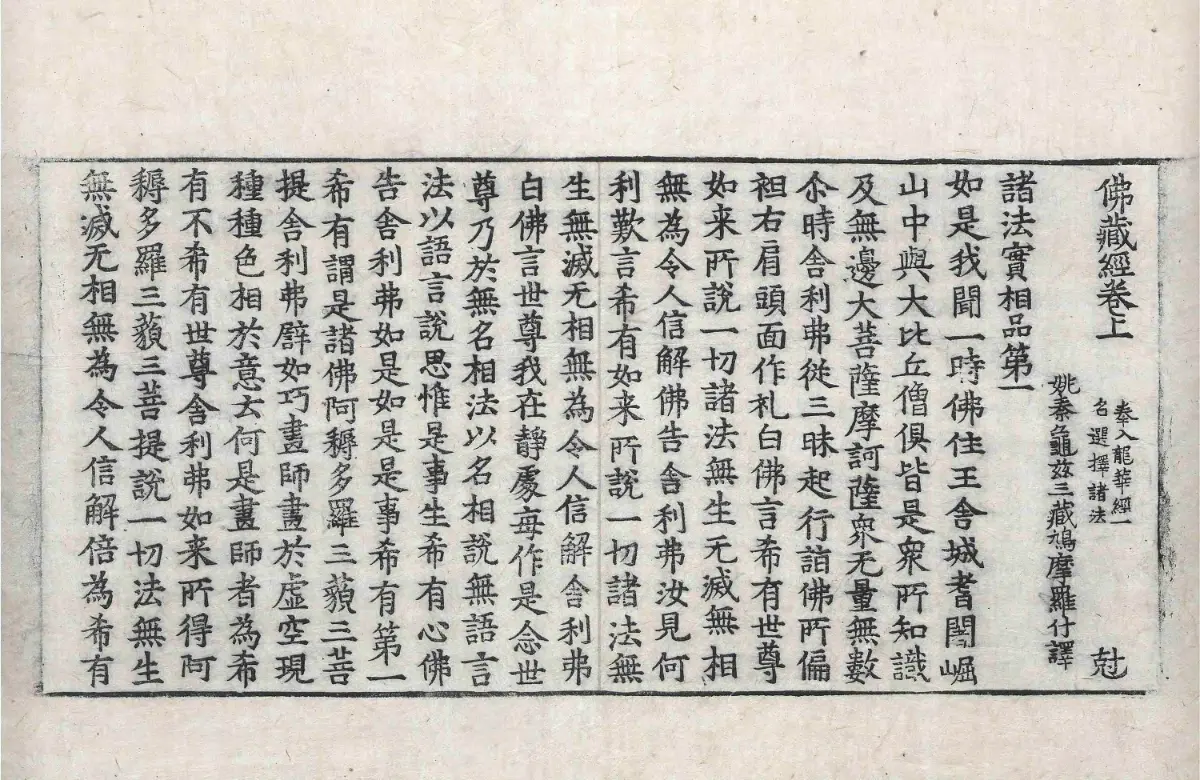 佛藏經卷上
奉入龍華經一
名選擇諸法
尅
姚秦龜玆三藏鳩摩羅什譯
諸法實相品第一
如是我聞一時佛住王舍城耆闍崛
山中與大比丘僧俱皆是衆所知識
及無邊大菩薩摩訶薩衆无量無數
尒時舍利弗從三昧起行詣佛所偏
袒右肩頭面作礼白佛言希有世尊
如来所說一切諸法無生无滅無相
無為令人信解佛告舍利弗汝見何
利歎言希有如来所說一切諸法無
生無滅无相無為令人信解舍利弗
白佛言世尊我在靜處每作是念世
尊乃於無名相法以名相說無語言
法以語言說思惟是事生希有心佛
告舍利弗如是如是是事希有第一
希有謂是諸佛阿耨多羅三藐三菩
提舍利弗譬如巧畫師畫於虛空現
種種色相於意云何是畫師者為希
有不希有世尊舍利弗如来所得阿
耨多羅三藐三菩提說一切法無生
無滅无相無為令人信解倍為希有